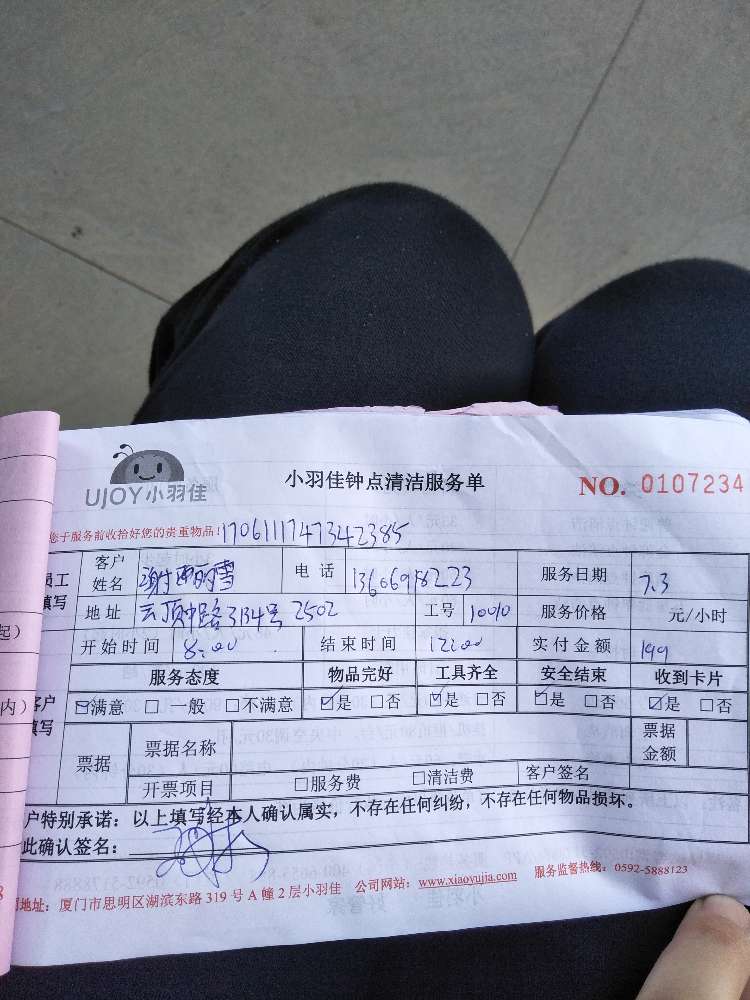 UJOY小羽佳
小羽佳钟点清洁服务单
NO. 0107234
您于服务前收拾好您的贵重物品!1706111747342385
员工填写
客户姓名 谢 丽雪 电话 13606918223 服务日期 7.3
地址 云顶中路3134号2502 工号 10010 服务价格 元/小时
起)
开始时间 8:00 结束时间 12:00 实付金额 199
服务态度 物品完好 工具齐全 安全结束 收到卡片
内)
客户填写
☑满意 □一般 □不满意 ☑是 □否 ☑是 □否 ☑是 □否 ☑是 □否
票据 票据名称 票据金额
开票项目 □服务费 □清洁费 客户签名
户特别承诺：以上填写经本人确认属实，不存在任何纠纷，不存在任何物品损坏。
此确认签名：
地址：厦门市思明区湖滨东路 319 号 A 幢 2 层小羽佳 公司网站：www.xiaoyujia.com 服务监督热线：0592-5888123